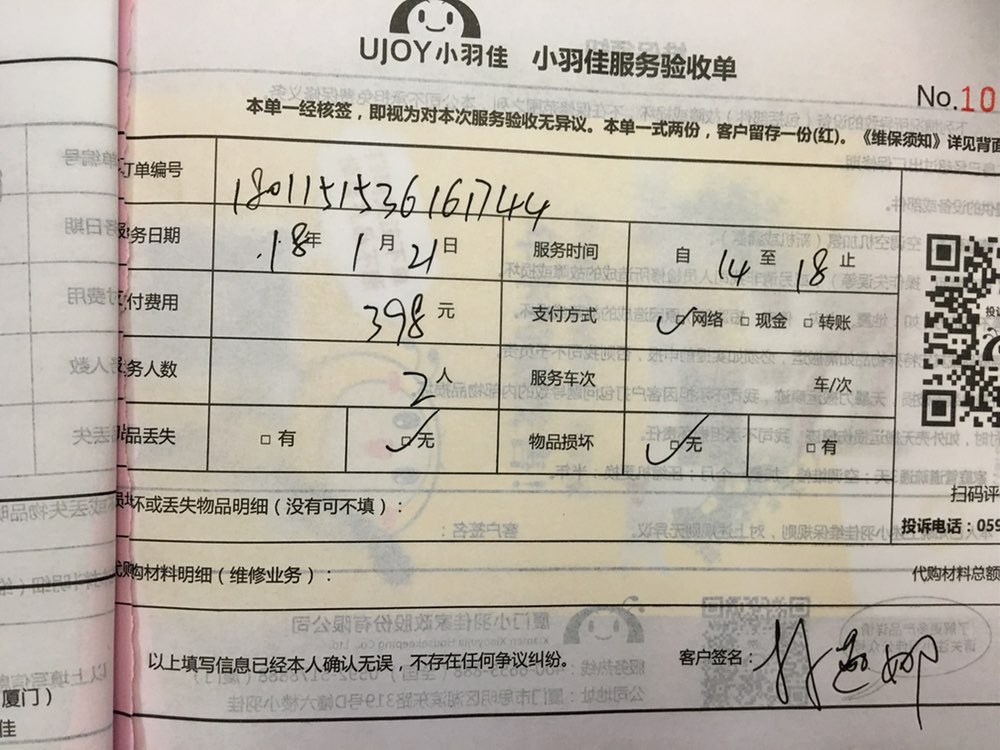 UJOY小羽佳 小羽佳服务验收单
No.10
本单一经核签，即视为对本次服务验收无异议。本单一式两份，客户留存一份(红)。《维保须知》详见背面
订单编号 1801151536161744
服务日期 18年 1月 21日 服务时间 自 14 至 18 止
付费用 398 元 支付方式 ☑网络 □现金 □转账
务人数 2人 服务车次 车/次
品丢失 □有 ☑无 物品损坏 ☑无 □有
扫码评
损坏或丢失物品明细（没有可不填）：
投诉电话：059
代购材料明细（维修业务）：
代购材料总额
以上填写信息已经本人确认无误，不存在任何争议纠纷。 客户签名：
厦门）
佳